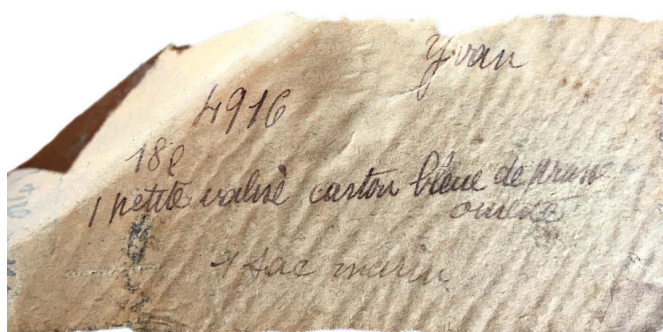 Yvan
4916
188
1 petite valise carton bleue de prusse
ouverte
1 sac marin